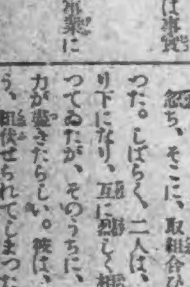 は事實
事業に
忽ち、そこに、取組合ひ
つた。しばらく、二人は、
り下になり、互に烈しく相
つてゐたが、そのうちに、
力が盡きたらしい。彼は、
う、組伏せられてしまつた